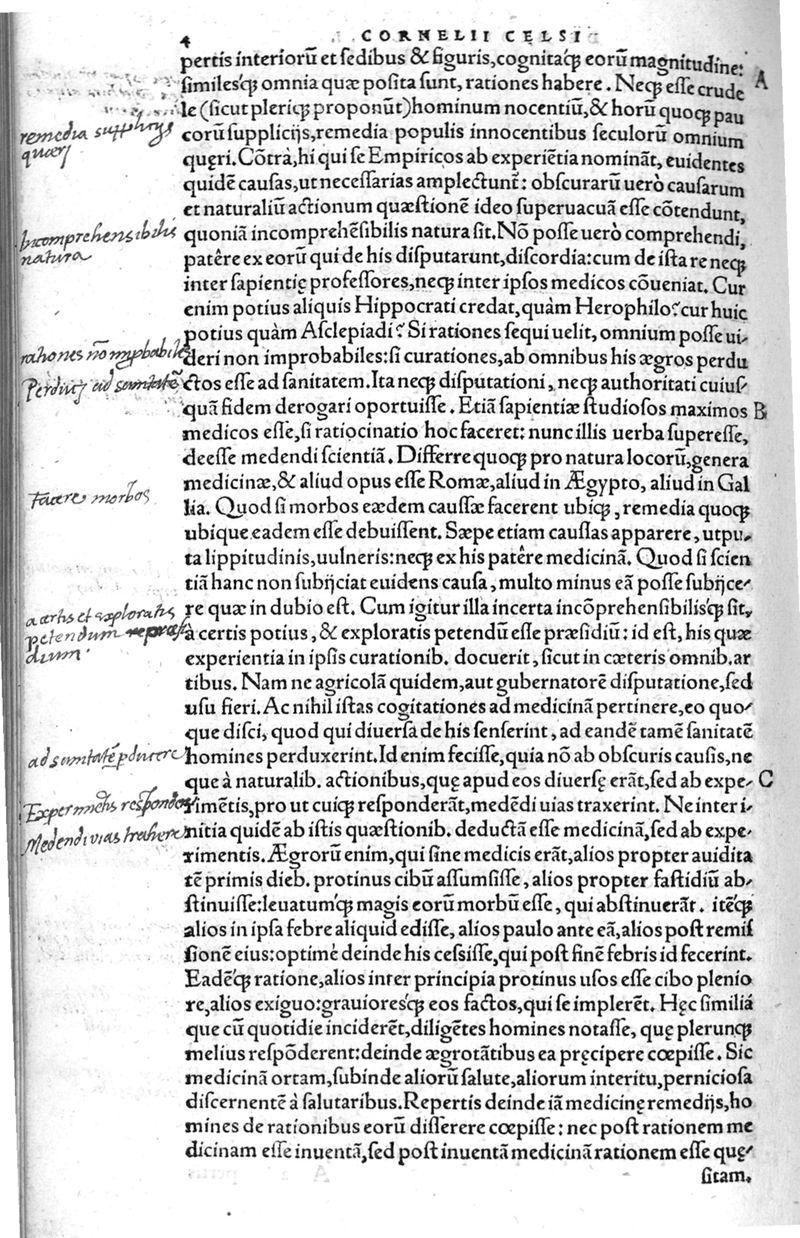 4 CORNELII CELSI
pertis interiorū et sedibus & figuris, cognitaq́; eorū magnitudine:
similesq́; omnia quæ posita sunt, rationes habere. Neq; esse crude A
le (sicut pleriq; proponūt) hominum nocentiū, & horū quoq; pau
remedia
corū supplicijs, remedia populis innocentibus seculorū omnium
quæri
quęri. Cōtrà, hi qui se Empiricos ab experiētia nominãt, euidentes
quidē causas, ut necessarias amplectunt̄: obscurarū uerò causarum
et naturaliū actionum quæstionē ideo superuacuā esse cōtendunt,
Incomprehensibilis
natura
quoniā incomprehēsibilis natura sit. Nō posse uerò comprehendi,
patêre ex eorū qui de his disputarunt, discordia: cum de ista re neq;
inter sapientię professores, neq; inter ipsos medicos cōueniat. Cur
enim potius aliquis Hippocrati credat, quàm Herophilo? cur huic
potius quàm Asclepiadi? Si rationes sequi uelit, omnium posse ui/
rationes nō improbabiles
deri non improbabiles: si curationes, ab omnibus his ægros perdu
Perducj ad sanitatē
ctos esse ad sanitatem. Ita neq; disputationi, neq; authoritati cuius/
quā fidem derogari oportuisse. Etiā sapientiæ studiosos maximos B
medicos esse, si ratiocinatio hoc faceret: nunc illis uerba superesse,
deesse medendi scientiā. Differre quoq; pro natura locorū, genera
medicinæ, & aliud opus esse Romæ, aliud in Ægypto, aliud in Gal
facere morbos
lia. Quod si morbos eædem caussæ facerent ubiq;, remedia quoq;
ubique eadem esse debuissent. Sæpe etiam caussas apparere, utpu/
ta lippitudinis, uulneris: neq; ex his patêre medicinā. Quod si scien
tiā hanc non subijciat euidens causa, multo minus eā posse subijce/
re quæ in dubio est. Cum igitur illa incerta incōprehensibilisq́; sit,
a certis et exploratis
petendum præsi
dium
à certis potius, & exploratis petendū esse præsidiū: id est, his quæ
experientia in ipsis curationib. docuerit, sicut in cæteris omnib. ar
tibus. Nam ne agricolā quidem, aut gubernatorē disputatione, sed
usu fieri. Ac nihil istas cogitationes ad medicinā pertinere, eo quo/
que disci, quod qui diuersa de his senserint, ad eandē tamē sanitatē
ad sanitatē pducere
homines perduxerint. Id enim fecisse, quia nō ab obscuris causis, ne
que à naturalib. actionibus, quę apud eos diuersę erāt, sed ab expe/ C
Experimētis respondere
rimētis, pro ut cuiq; responderāt, medēdi uias traxerint. Ne inter i/
Medendi vias trahere
nitia quidē ab istis quæstionib. deductā esse medicinā, sed ab expe/
rimentis. Ægrorū enim, qui sine medicis erāt, alios propter auidita
tē primis dieb. protinus cibū assumsisse, alios propter fastidiū ab/
stinuisse: leuatumq́; magis eorū morbū esse, qui abstinuerāt. itēq́;
alios in ipsa febre aliquid edisse, alios paulo ante eā, alios post remis
sionē eius: optimé deinde his cessisse, qui post finē febris id fecerint.
Eadēq́; ratione, alios inter principia protinus usos esse cibo plenio
re, alios exiguo: grauioresq́; eos factos, qui se implerēt. Hęc similiá
que cū quotidie inciderēt, diligētes homines notasse, quę plerunq;
melius respōderent: deinde ægrotātibus ea pręcipere cœpisse. Sic
medicinā ortam, subinde aliorū salute, aliorum interitu, perniciosa
discernentē à salutaribus. Repertis deinde iā medicinę remedijs, ho
mines de rationibus eorū disserere cœpisse: nec post rationem me
dicinam esse inuentā, sed post inuentā medicinā rationem esse quę/
sitam.